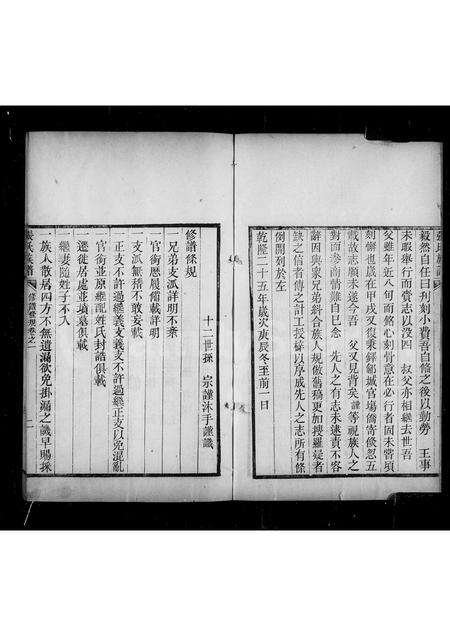 毅然自任曰刋刻小費吾自條之後以勤勞　王事
未暇舉行而賫志以没四　叔父亦相繼去世吾
父雖年近八旬而銘心刻骨意在必行者固未嘗頃
刻懈也歲在甲戌又復秉鐸鄒城官塲僑寄倐忽五
載故志願未遂今吾　父又見背矣謹等視族人之
對而參商情難自已念　先人之有志未逮責不容
辭因與衆兄弟糾合族人規倣舊稿更加搜羅疑者
缺之信者傳之計工授梓以厚成先人之志所有條
例開列於左
乾隆二十五年歲次庚辰冬至前一日
十二世孫　宗謹沐手謹識
修譜條規
一兄弟支派詳明不紊
一官銜歷履備載詳明
一支派無稽不敢妄載
一正支不許過繼義支義支不許過繼正支以免混亂
一官銜並原繼配姓氏封誥俱載
一遷徙居處並墳墓俱載
一繼妻隨姓子不入
一族人散居四方不無遺漏欲免掛漏之譏早賜採
張氏族譜　修譜條規卷之一　一